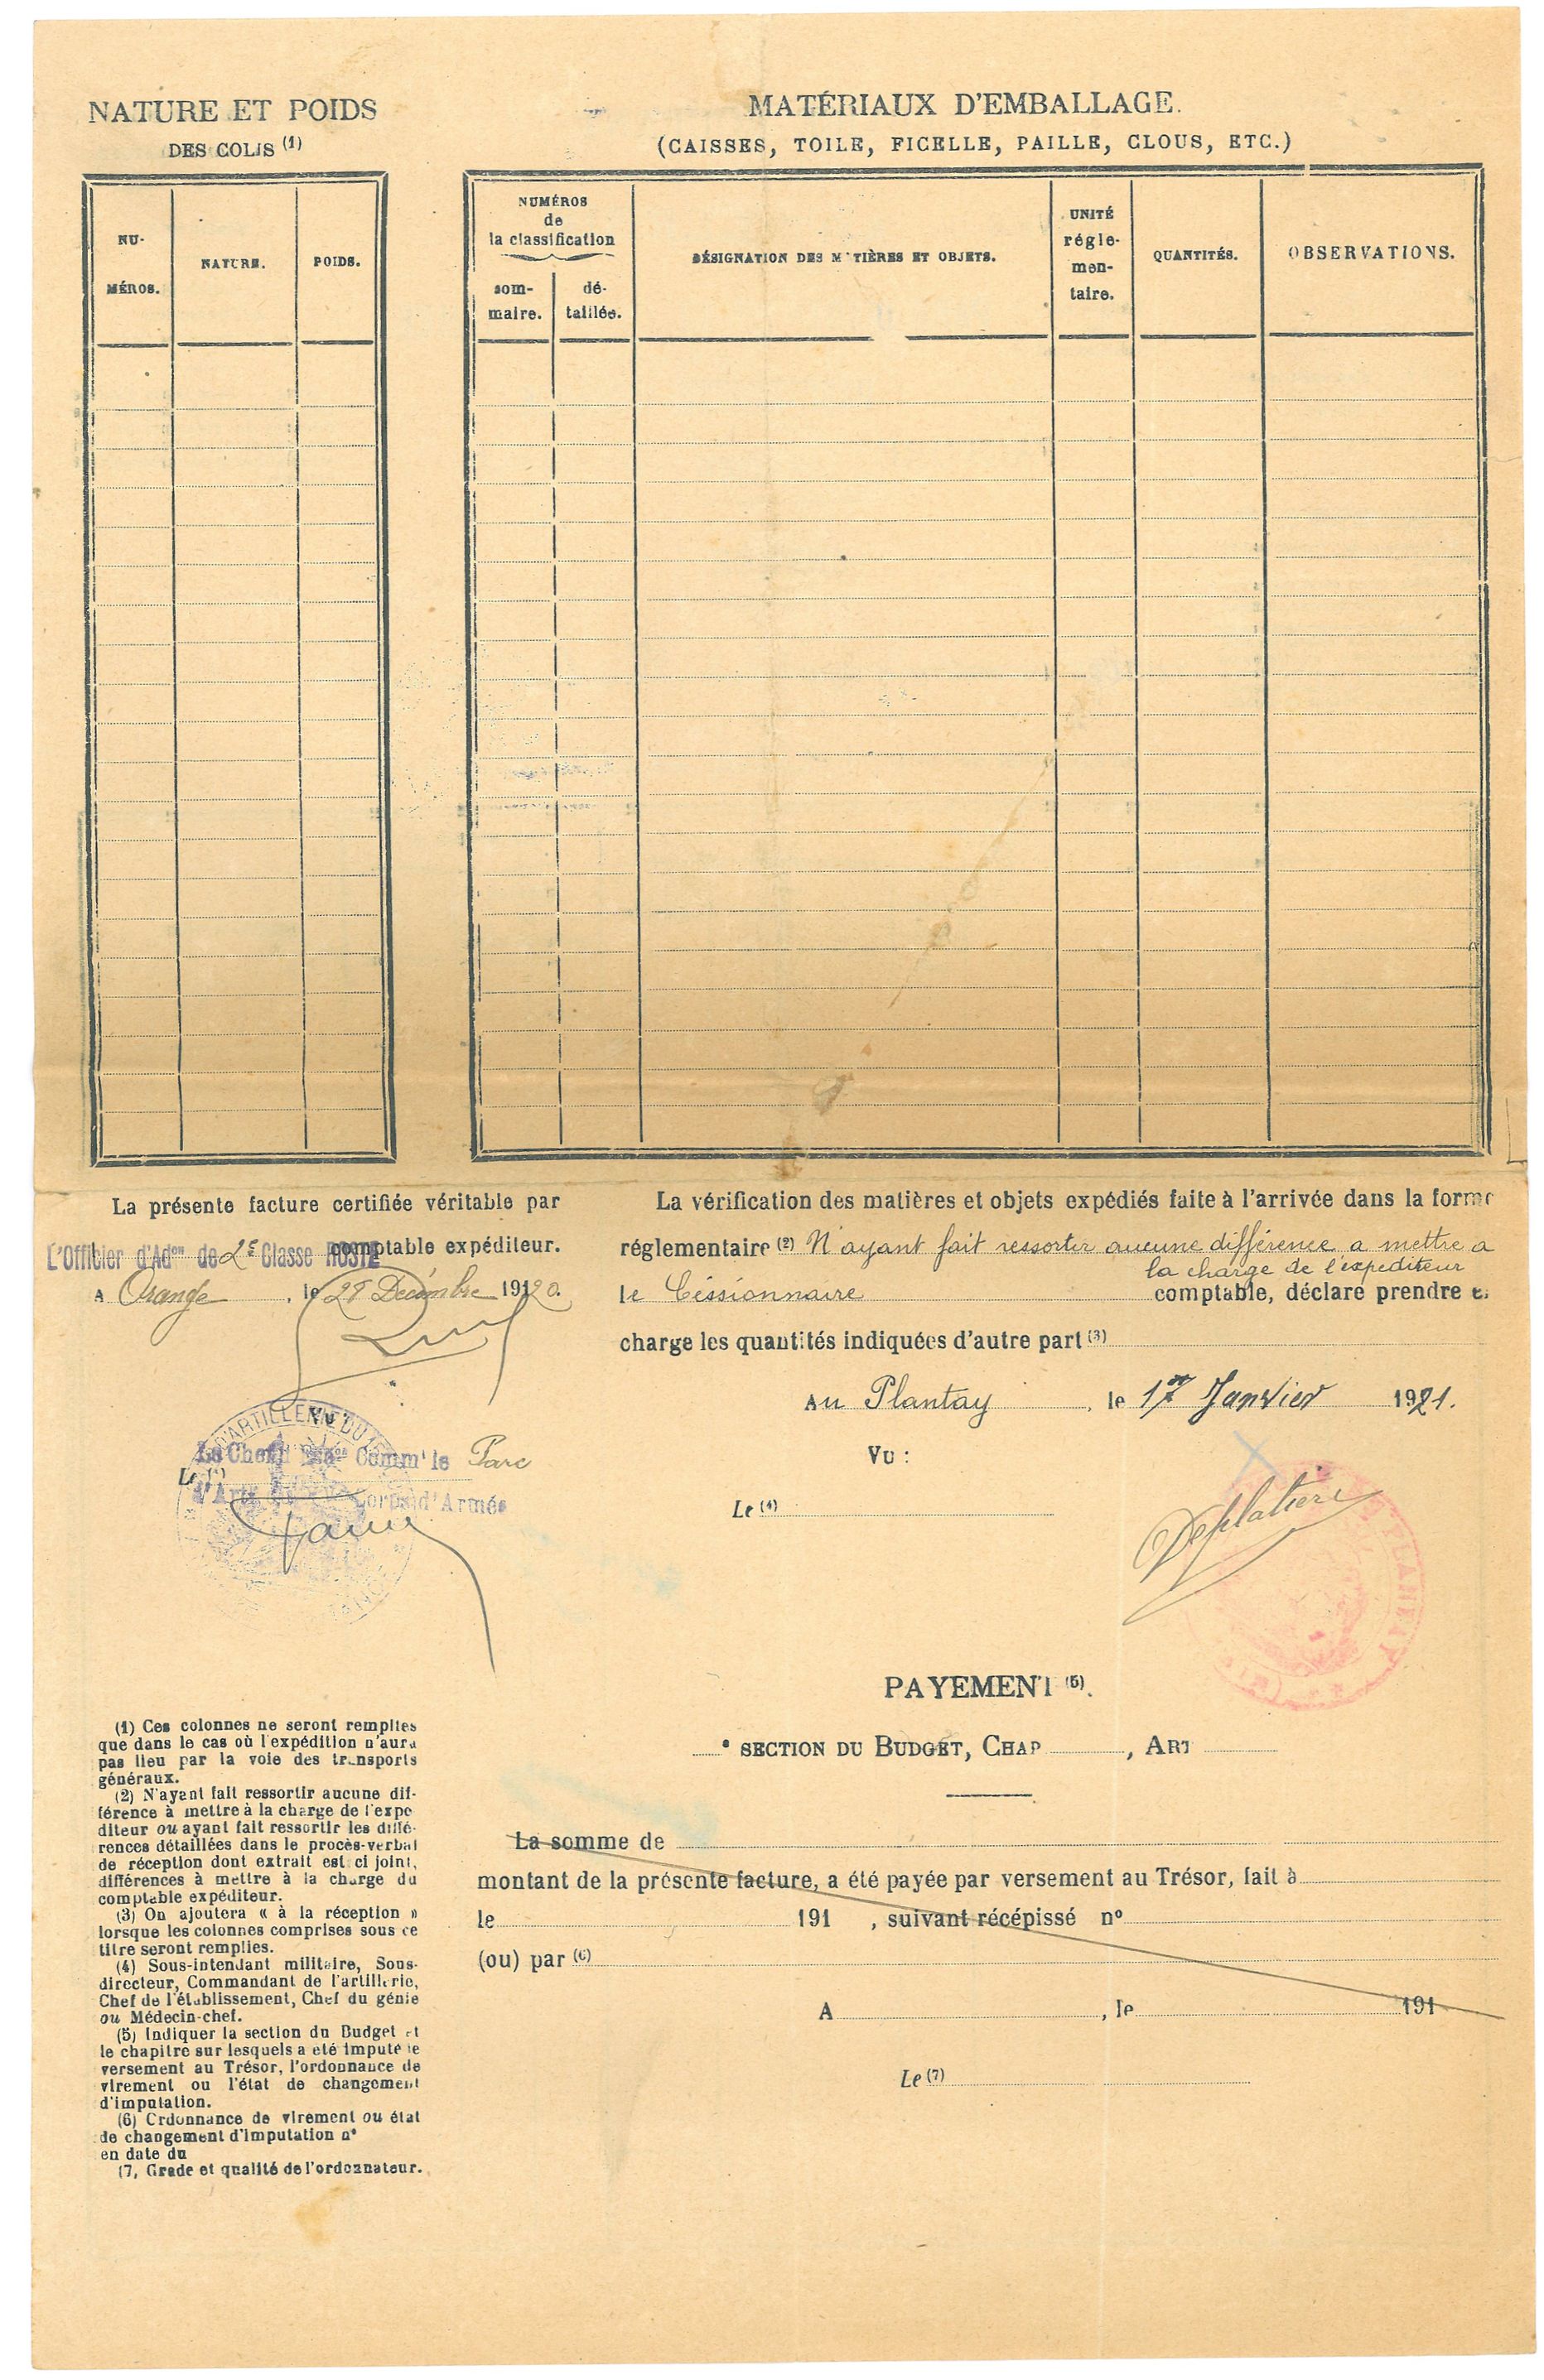 NATURE ET POIDS
DES COLIS (1)
NU-
MÉROS.
NATURE.
POIDS.
MATÉRIAUX D'EMBALLAGE.
(CAISSES, TOILE, FICELLE, PAILLE, CLOUS, ETC.)
NUMÉROS
de
la classification
som-
maire.
dé-
taillée.
DÉSIGNATION DES MATIÈRES ET OBJETS.
UNITÉ
régle-
men-
taire.
QUANTITÉS.
OBSERVATIONS.
La présente facture certifiée véritable par
L'Officier d'Adon de 2e Classe ROSTE comptable expéditeur.
A Orange, le 28 Décembre 1920.
Vu :
Le Chef d' Esc^on Comm^t le Parc
Le (4)
d'Art Corps d'Armée
D'ARTILLERIE DU
La vérification des matières et objets expédiés faite à l'arrivée dans la forme
réglementaire (2) N'ayant fait ressortir aucune différence a mettre a
la charge de l'expediteur
le Céssionnaire comptable, déclare prendre e
charge les quantités indiquées d'autre part (3)
Au Plantay, le 17 Janvier 1921.
Vu :
Le (4)
Desplatiere
PLANTAY
PAYEMENT (5).
e SECTION DU BUDGET, CHAP , ART
La somme de
montant de la présente facture, a été payée par versement au Trésor, fait à
le 191 , suivant récépissé nº
(ou) par (6)
A , le 191
Le (7)
(1) Ces colonnes ne seront remplies
que dans le cas où l'expédition n'aura
pas lieu par la voie des transports
généraux.
(2) N'ayant fait ressortir aucune dif-
férence à mettre à la charge de l'expé
diteur ou ayant fait ressortir les diffé-
rences détaillées dans le procès-verbal
de réception dont extrait est ci joint,
différences à mettre à la charge du
comptable expéditeur.
(3) On ajoutera « à la réception »
lorsque les colonnes comprises sous ce
titre seront remplies.
(4) Sous-intendant militaire, Sous-
directeur, Commandant de l'artillerie,
Chef de l'établissement, Chef du génie
ou Médecin-chef.
(5) Indiquer la section du Budget et
le chapitre sur lesquels a été imputé le
versement au Trésor, l'ordonnance de
virement ou l'état de changement
d'imputation.
(6) Ordonnance de virement ou état
de changement d'imputation nº
en date du
(7, Grade et qualité de l'ordonnateur.